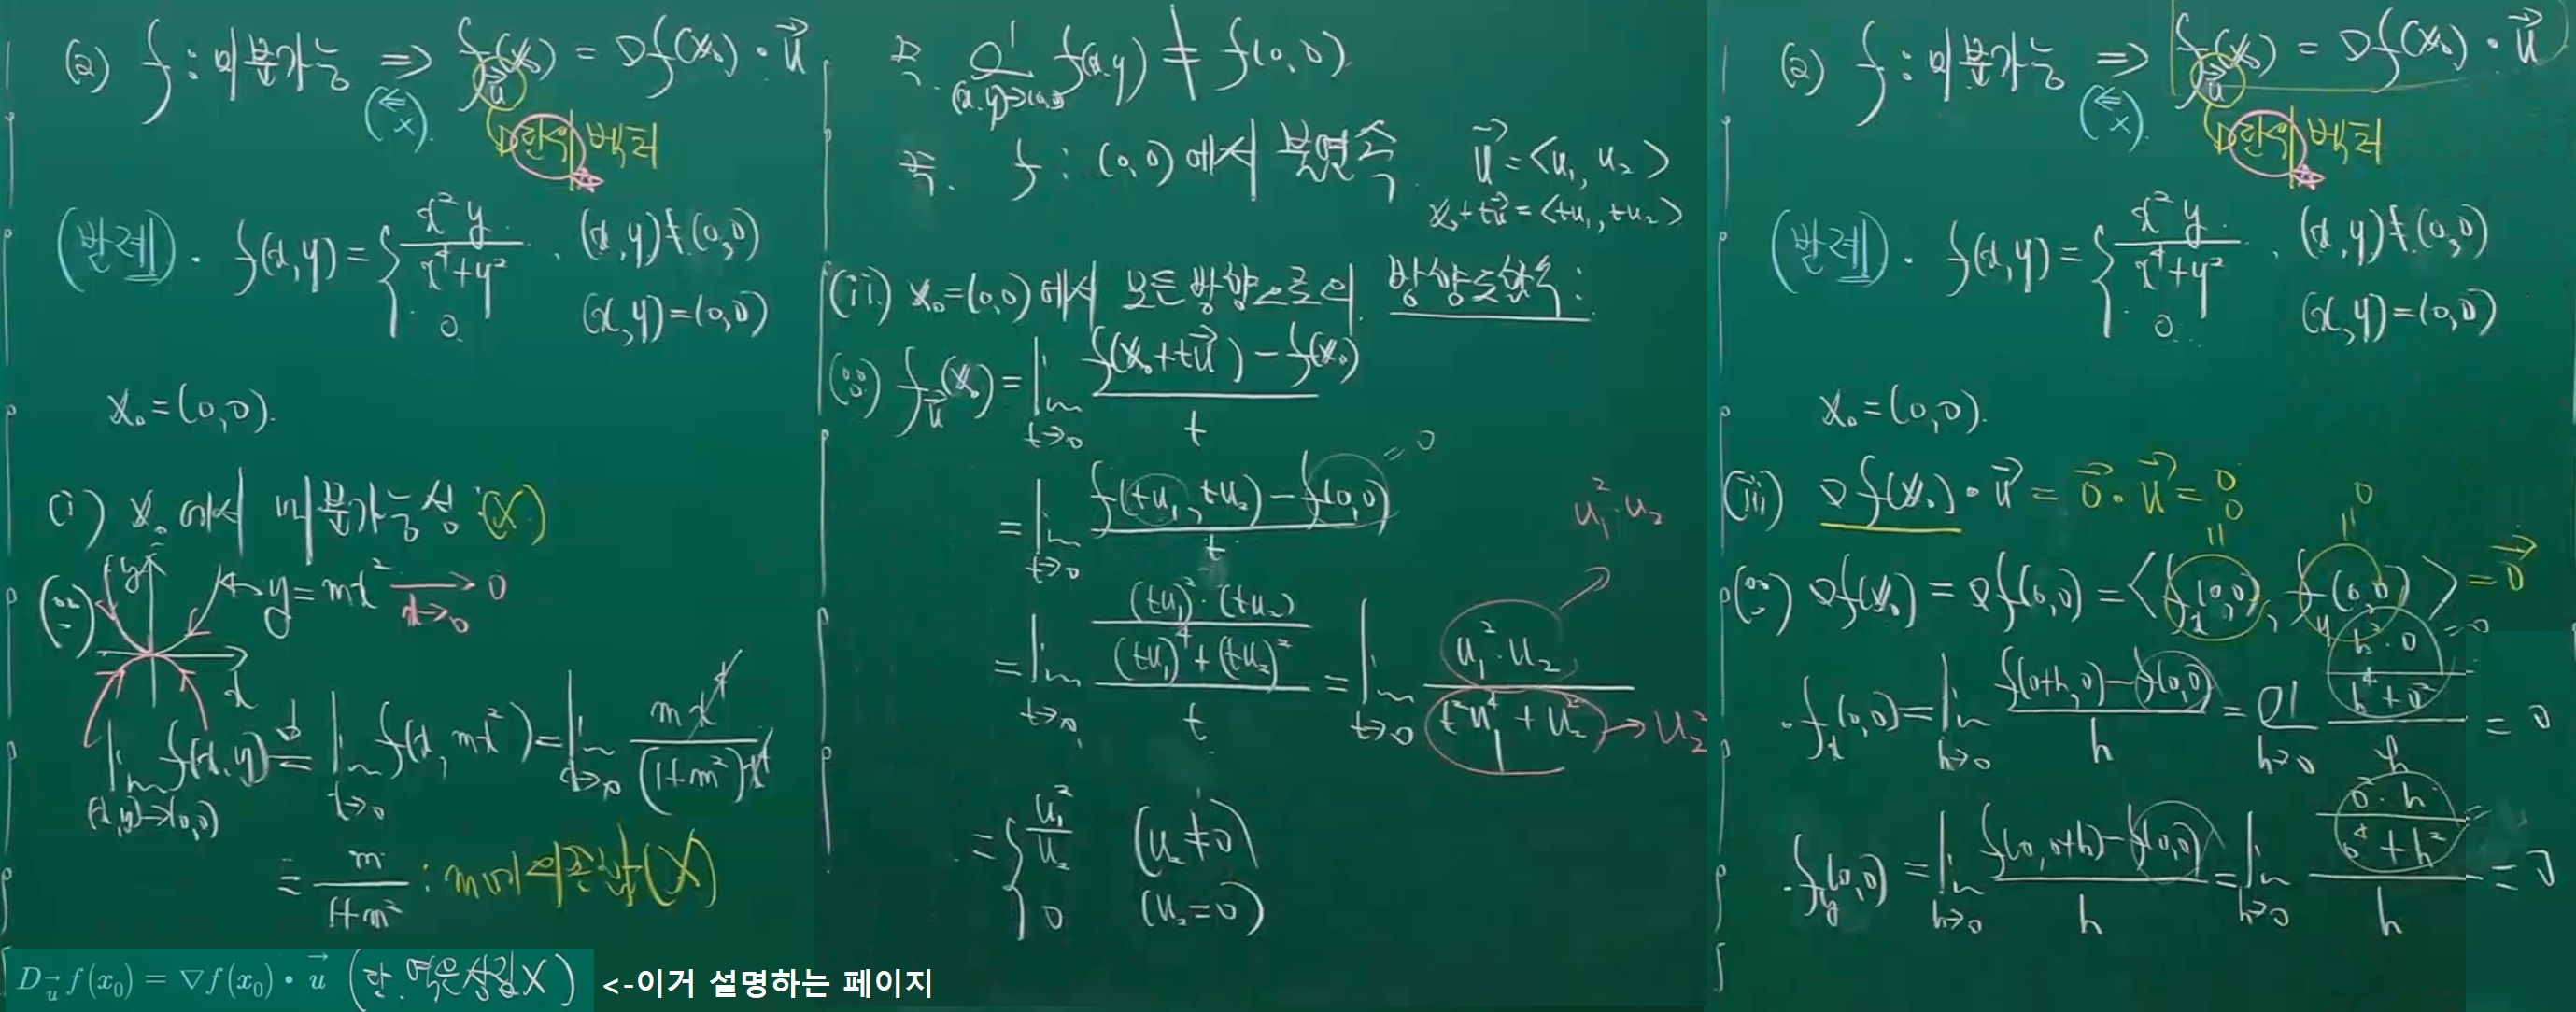 (2) f : 미분가능 ⇒ f_u⃗(x₀) = ∇f(x₀)・u⃗
(⇐ ×).
단위벡터
(반례). f(x,y) = { x²y / (x⁴+y²) , (x,y)≠(0,0)
0 (x,y)=(0,0)
x₀=(0,0).
(i) x₀에서 미분가능성 (X)
(∵) y=mx² → 0
x→0
y
x
lim f(x,y) = lim f(x, mx²) = lim mx⁴ / (1+m²)x⁴
(x,y)→(0,0) x→0 x→0
= m / (1+m²) : m에 의존함 (X)
D_u⃗ f(x₀) = ∇f(x₀)・u⃗ (단, 역은 성립X) <-이거 설명하는 페이지
즉. lim f(x,y) ≠ f(0,0)
(x,y)→(0,0)
즉. f : (0,0)에서 불연속
u⃗=<u₁, u₂>
x₀+tu⃗=<tu₁, tu₂>
(ii) x₀=(0,0)에서 모든방향으로의 방향도함수:
(∵) f_u⃗(x₀) = lim t→0 (f(x₀+tu⃗) - f(x₀)) / t
= lim t→0 (f(tu₁, tu₂) - f(0,0)) / t
=0
= lim t→0 ((tu₁)²・(tu₂) / ((tu₁)⁴+(tu₂)²)) / t = lim t→0 u₁²・u₂ / (t²u₁⁴+u₂²)
u₁² u₂
→ u₂²
= { u₁²/u₂ (u₂≠0)
0 (u₂=0)
(2) f : 미분가능 ⇒ f_u⃗(x₀) = ∇f(x₀)・u⃗
(⇐ ×).
단위벡터
(반례). f(x,y) = { x²y / (x⁴+y²) , (x,y)≠(0,0)
0 (x,y)=(0,0)
x₀=(0,0).
(iii) ∇f(x₀)・u⃗ = 0⃗・u⃗ = 0
0 0
(∵) ∇f(x₀) = ∇f(0,0) = <f_x(0,0), f_y(0,0)> = 0⃗
・f_x(0,0) = lim h→0 (f(0+h,0) - f(0,0)) / h = lim h→0 (h²・0 / (h⁴+0²)) / h = 0
=0
・f_y(0,0) = lim h→0 (f(0,0+h) - f(0,0)) / h = lim h→0 (0²・h / (0⁴+h²)) / h = 0